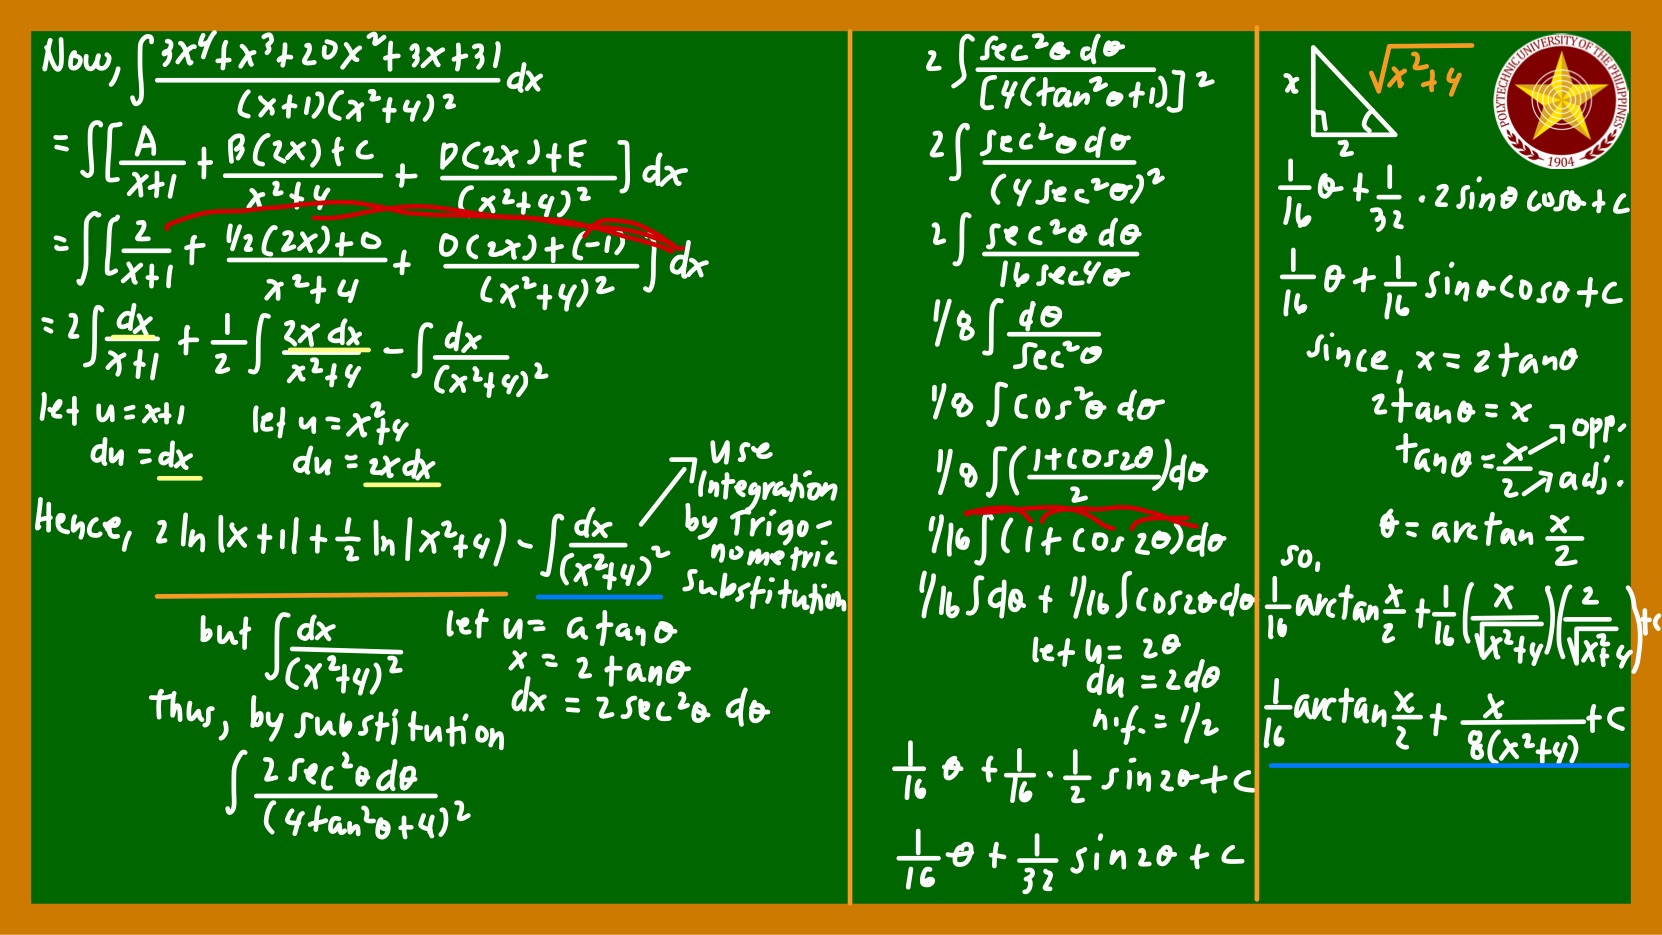 Now, ∫ 3x⁴+x³+20x²+3x+31 / (x+1)(x²+4)² dx
= ∫ [ A/x+1 + B(2x)+C / x²+4 + D(2x)+E / (x²+4)² ] dx
= ∫ [ 2/x+1 + 1/2(2x)+0 / x²+4 + 0(2x)+(-1) / (x²+4)² ] dx
= 2 ∫ dx/x+1 + 1/2 ∫ 2x dx / x²+4 - ∫ dx / (x²+4)²
let u = x+1 let u = x²+4
du = dx du = 2x dx
Hence, 2 ln |x+1| + 1/2 ln |x²+4) - ∫ dx / (x²+4)²
use
Integration
by Trigo-
nometric
substitution
but ∫ dx / (x²+4)²
let u = a tanθ
x = 2 tanθ
dx = 2 sec²θ dθ
Thus, by substitution
∫ 2 sec²θ dθ / (4 tan²θ+4)²
2 ∫ sec²θ dθ / [4(tan²θ+1)]²
2 ∫ sec²θ dθ / (4 sec²θ)²
2 ∫ sec²θ dθ / 16 sec4θ
1/8 ∫ dθ / sec²θ
1/8 ∫ cos²θ dθ
1/8 ∫ (1+cos2θ / 2) dθ
1/16 ∫ (1 + cos 2θ) dθ
1/16 ∫ dθ + 1/16 ∫ cos2θ dθ
let u = 2θ
du = 2dθ
n.f. = 1/2
1/16 θ + 1/16 · 1/2 sin2θ + C
1/16 θ + 1/32 sin2θ + C
x √x²+4
2
POLYTECHNIC UNIVERSITY OF THE PHILIPPINES
1904
1/16 θ + 1/32 · 2 sinθ cosθ + C
1/16 θ + 1/16 sinθ cosθ + C
since, x = 2 tanθ
2 tanθ = x
tanθ = x/2 opp.
adj.
θ = arctan x/2
so,
1/16 arctan x/2 + 1/16 (x/√x²+4)(2/√x²+4) + C
1/16 arctan x/2 + x / 8(x²+4) + C